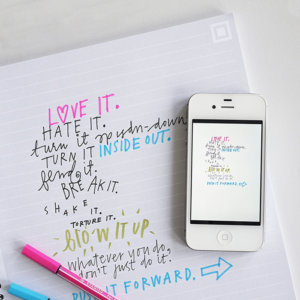 LOVE IT.
HATE IT.
turn it upside-down
TURN IT INSIDE OUT.
bend it.
BREAK IT.
SHAKE IT.
TORTURE IT.
BLOW IT UP
whatever you do,
don't just do it.
PUSH IT FORWARD.
LOVE IT.
PUSH IT FORWARD